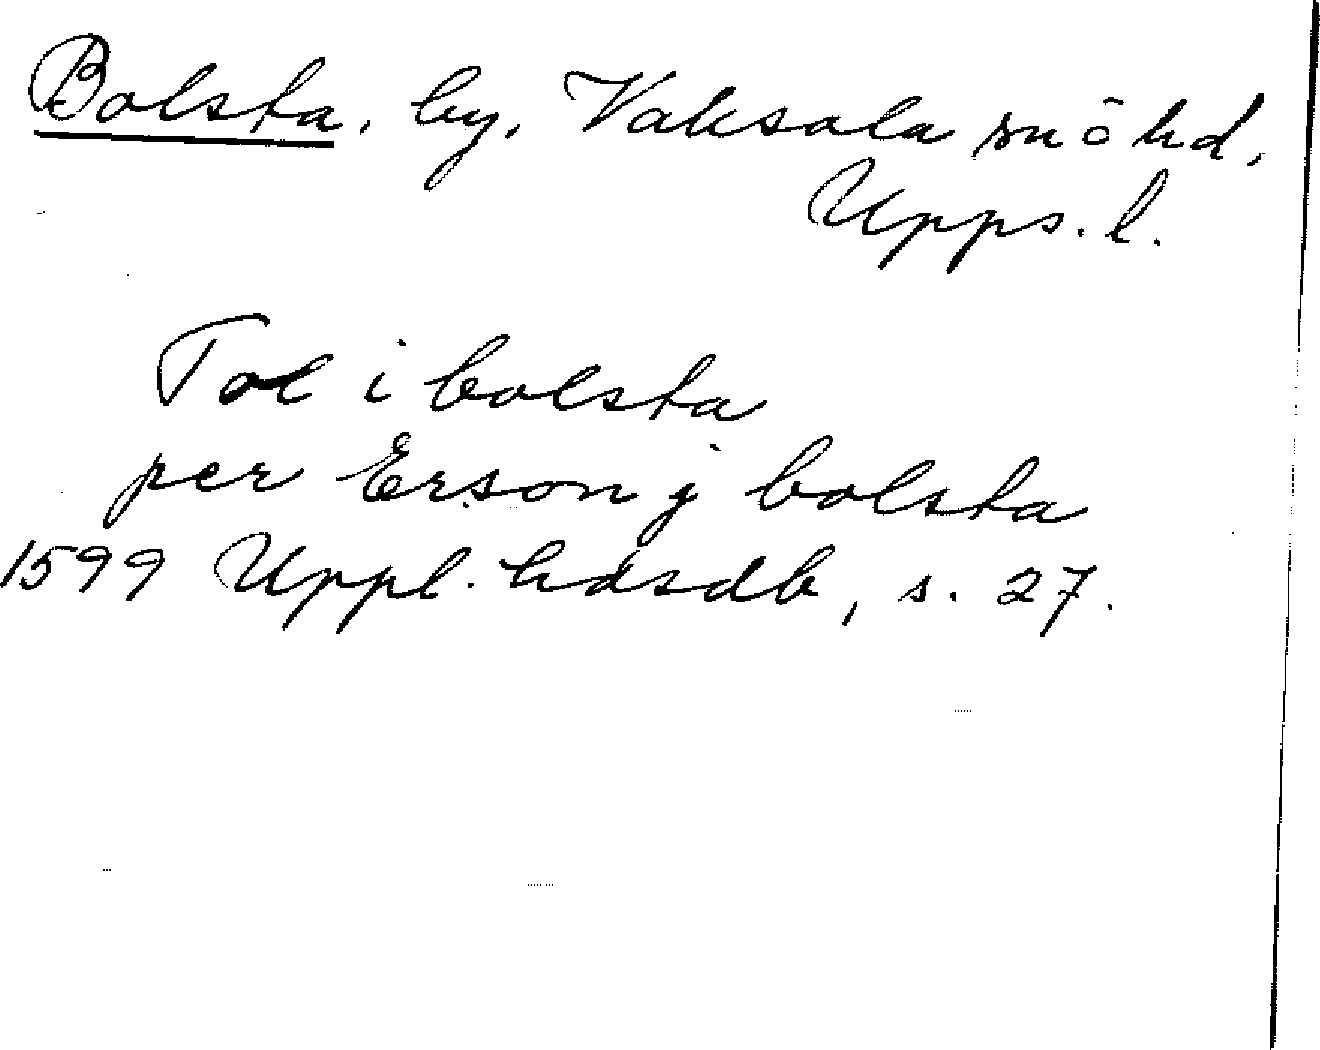 Bolsta, by, Vaksala sn ö hd,
Upps. l.
Tol i bolsta
per Erson j bolsta
1599 Uppl. hdsdb, s. 27.